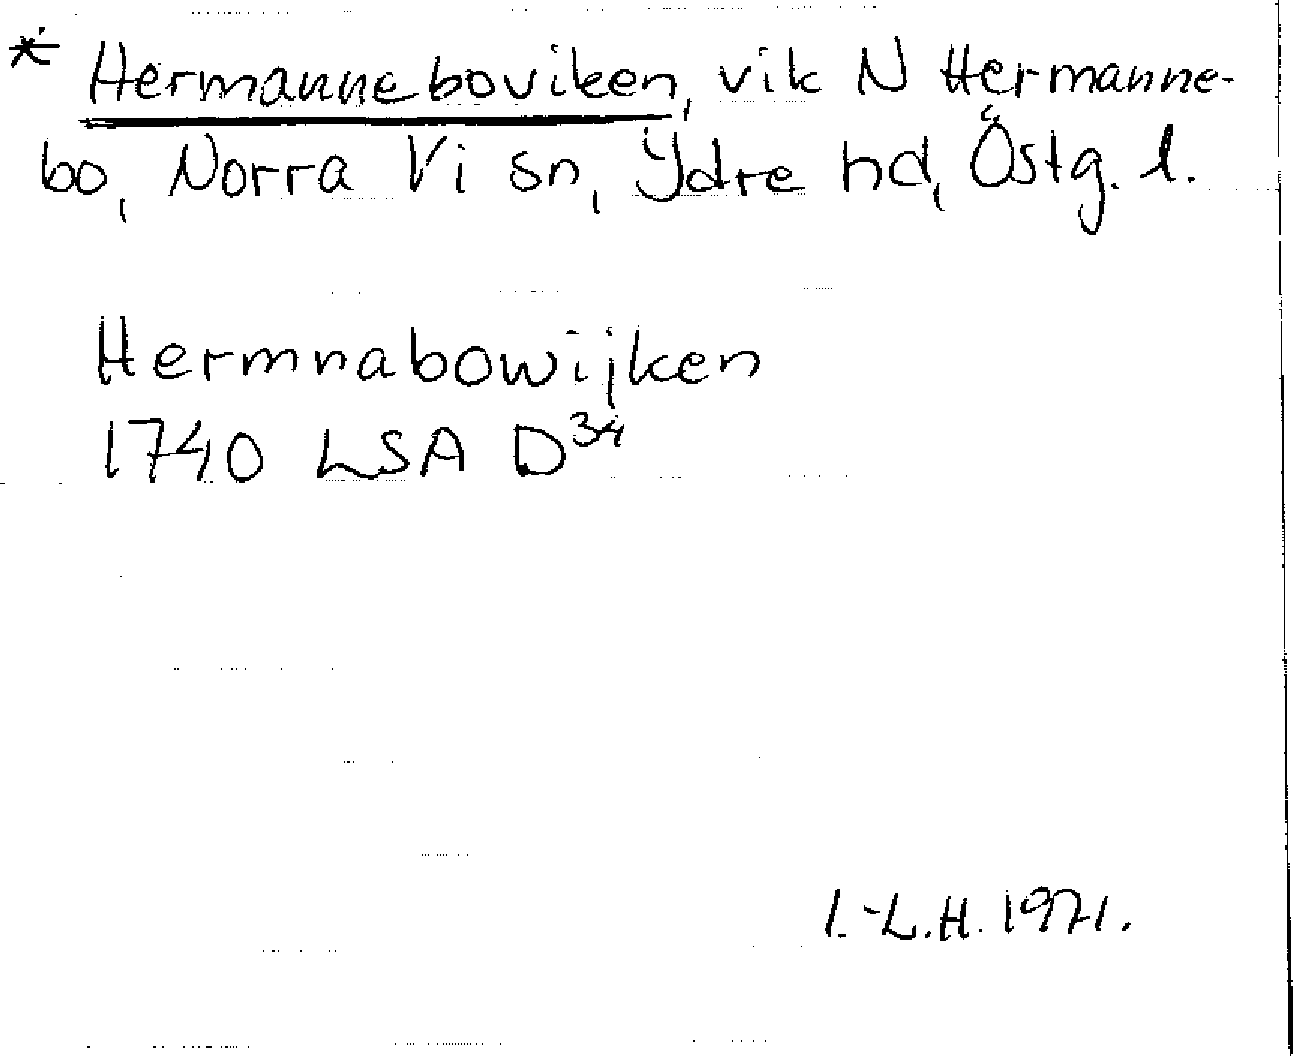 * Hermanneboviken, vik N Hermanne-
bo, Norra Vi sn, Ydre hd, Östg. l.
Hermnabowijken
1740 LSA D³⁴
I.-L.H. 1971.